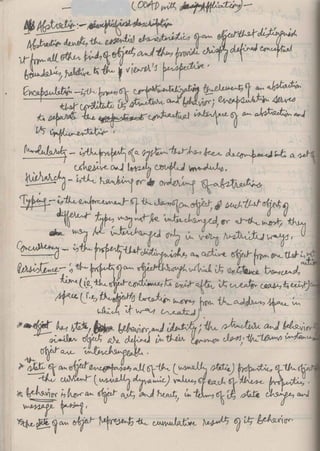 (OOAD with Applications)
Abstraction -
Abstraction denotes the essential characteristics of an object that distinguish
it from all other kinds of objects and thus provide crisply defined conceptual
boundaries, relative to the viewer's perspective.
Encapsulation - is the process of compartmentalizing the elements of an abstraction
that constitute its structure and behavior; encapsulation serves
to separate the contractual interface of an abstraction and
its implementation
Modularity - is the property of a system that has been decomposed into a set of
cohesive and loosely coupled moduls.
Hierarchy - is the ranking or ordering of abstractions.
Typing - is the enforcement of the class of an object, such that object of
different types may not be interchanged, or at the most, they
may be interchanged only in very restricted ways.
Concurrency - is the property that distinguishes an active object from one that is not
active
Persistence - is the property of an object through which its existence transcends
time (i.e., the object continues to exist after its creator ceases to exist) and/or
space (i.e., the objects location moves from the address space in
which it was created)
* an object has state, behavior, and identity; the structure and behavior of
similar objects are defined in their common class; the terms instance and
object are interchangeable.
* the state of an object encompasses all of the (usually static) properties of the object
the current (usually dynamic) values of each of these properties.
* behavior is how an object acts and reacts, in terms of its state changes and
message passing.
* the state of an object represents the cumulative results of its behavior